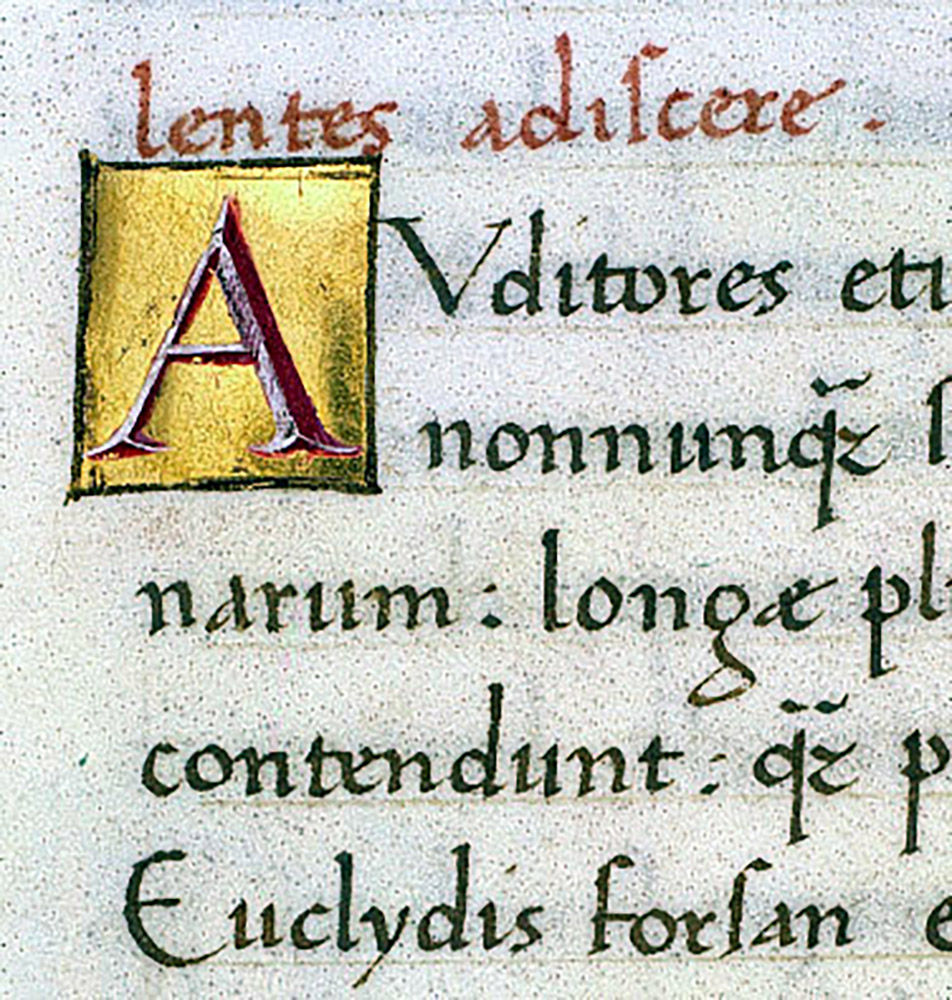 lentes adiſcere.
AVditores eti
nonnunq̃ꝫ l
narum: longæ pl
contendunt: q̃ꝫ p
Euclydis forſan e